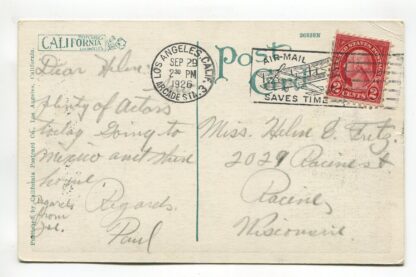 CALIFORNIA
Published by California Postcard Co., Los Angeles, California.
Post Card
LOS ANGELES, CALIF.
SEP 29
2 30 PM
1926
ARCADE STA. 3
AIR-MAIL
SAVES TIME
2 CENTS 2
Dear Helen,
plenty of actors
today Going to
Mexico and then
home
Regards
from
Regards.
Paul
Miss. Helen E. Lutz
2029 Racine st
Racine,
Wisconsin.